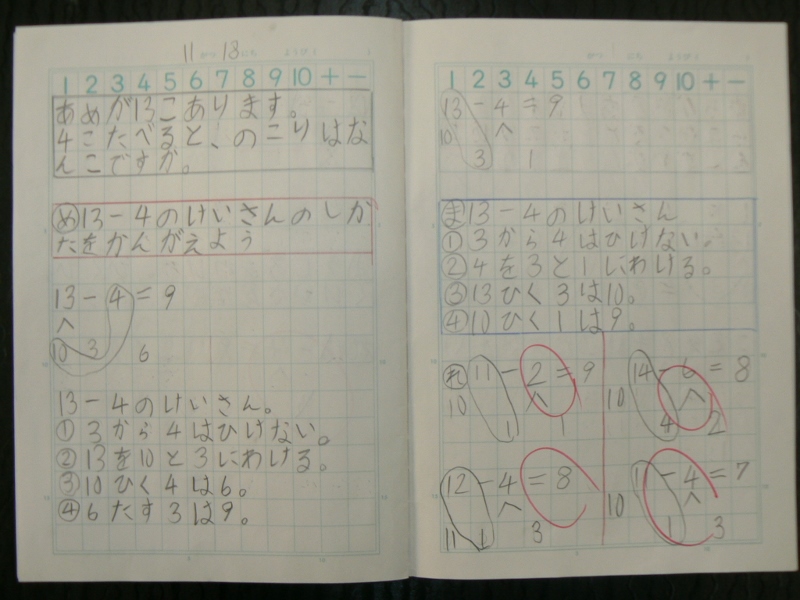 11 がつ 18 にち ようび
1 2 3 4 5 6 7 8 9 10 + −
あめが13こあります。
4こたべると、のこりはな
んこですか。
め 13−4のけいさんのしか
たをかんがえよう
13−4=9
10 3 6
13−4のけいさん。
① 3から4はひけない。
② 13を10と3にわける。
③ 10ひく4は6。
④ 6たす3は9。
がつ にち ようび
1 2 3 4 5 6 7 8 9 10 + −
13−4=9
10 3 1
ま 13−4のけいさん
① 3から4はひけない。
② 4を3と1にわける。
③ 13ひく3は10。
④ 10ひく1は9。
れ 11−2=9 14−6=8
10 1 1 10 4 2
12−4=8 −4=7
1 3 10 1 3